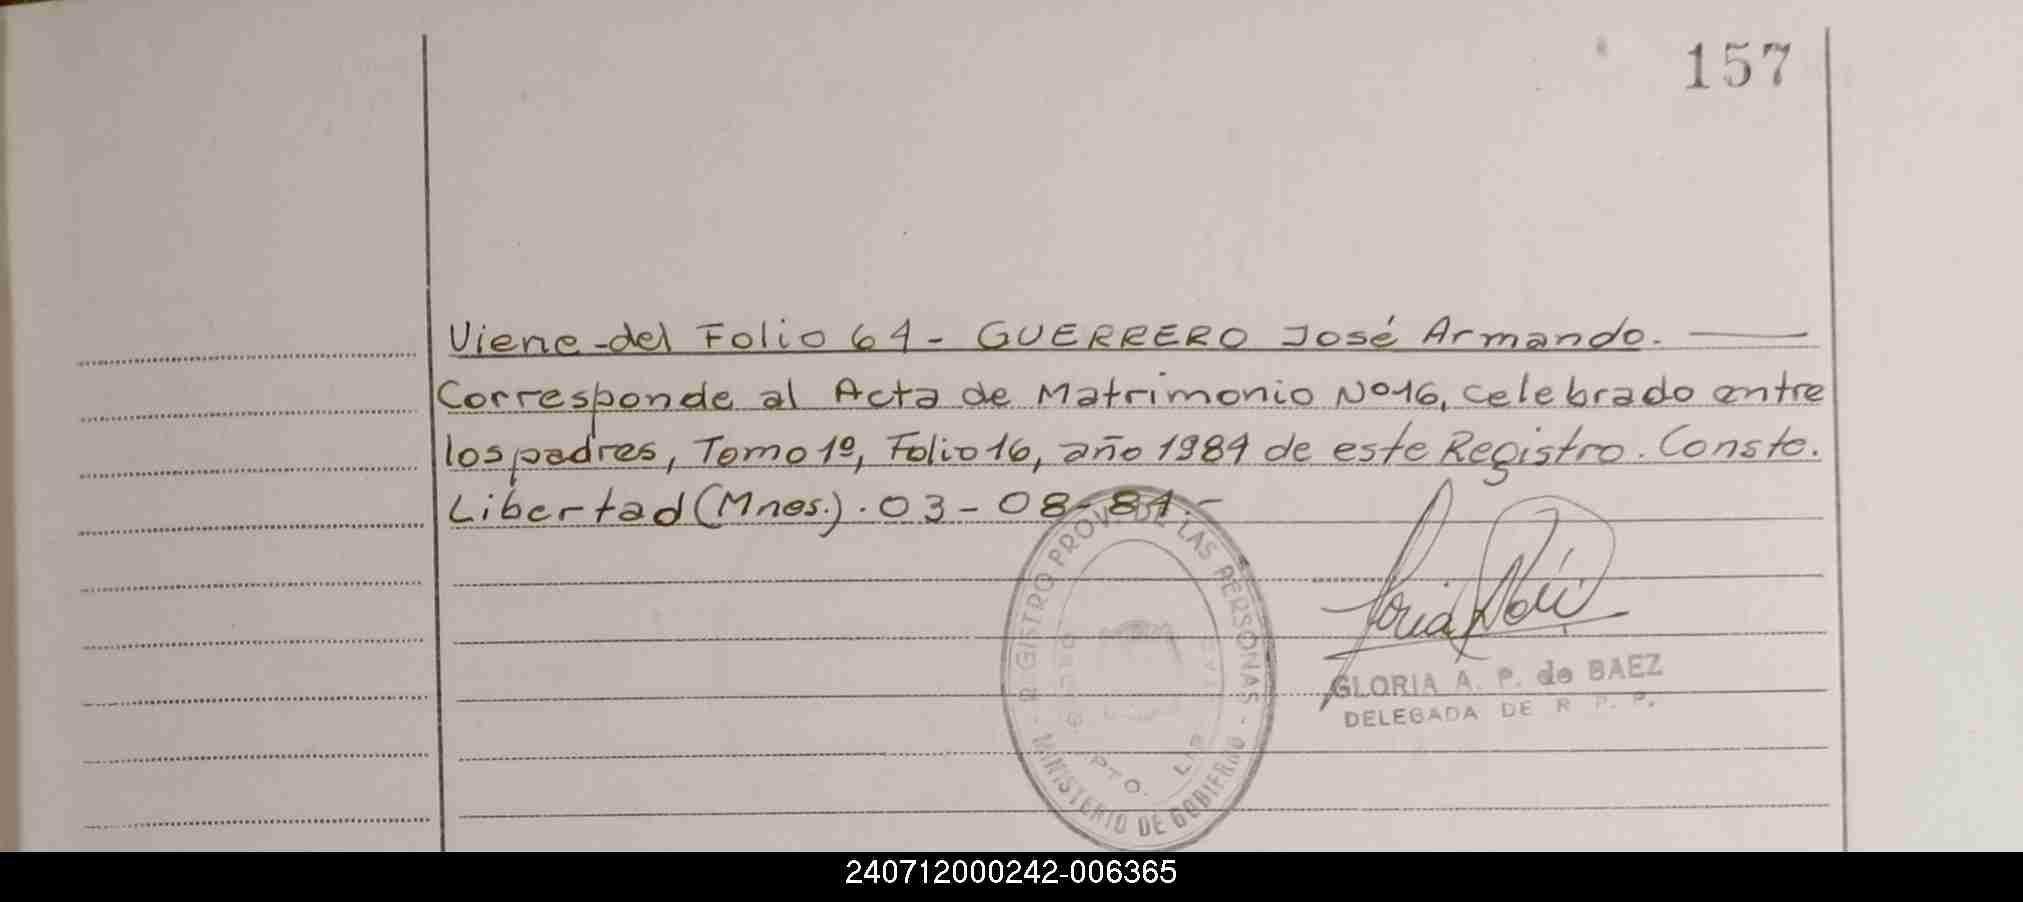 157
Viene del Folio 64 - GUERRERO José Armando.
Corresponde al Acta de Matrimonio Nº 16, celebrado entre
los padres, Tomo 1º, Folio 16, año 1984 de este Registro. Conste.
Libertad (Mnes.). 03-08-84.-
REGISTRO PROV. DE LAS PERSONAS - MINISTERIO DE GOBIERNO -
GLORIA A. P. de BAEZ
DELEGADA DE R. P. P.
240712000242-006365